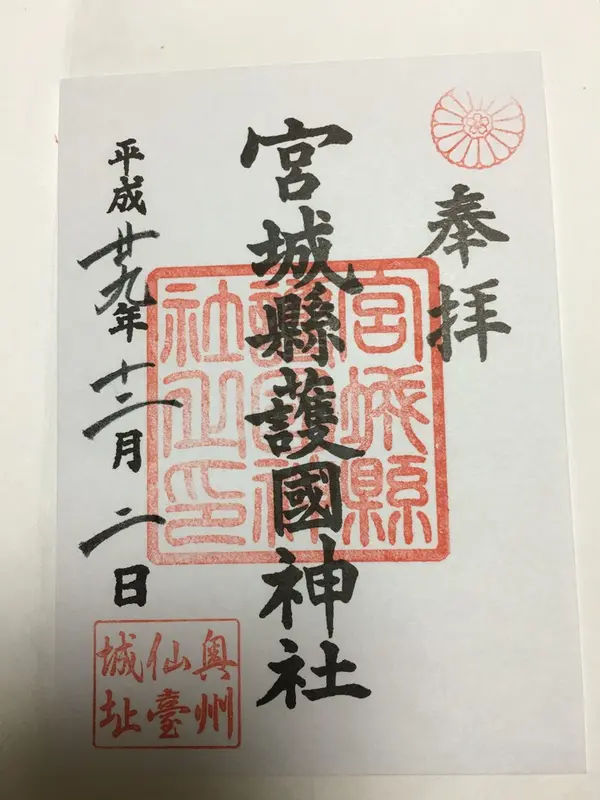 奉拝
宮城縣護國神社
平成廿九年十二月二日
宮城縣
護國神
社之印
奥州
仙臺
城址